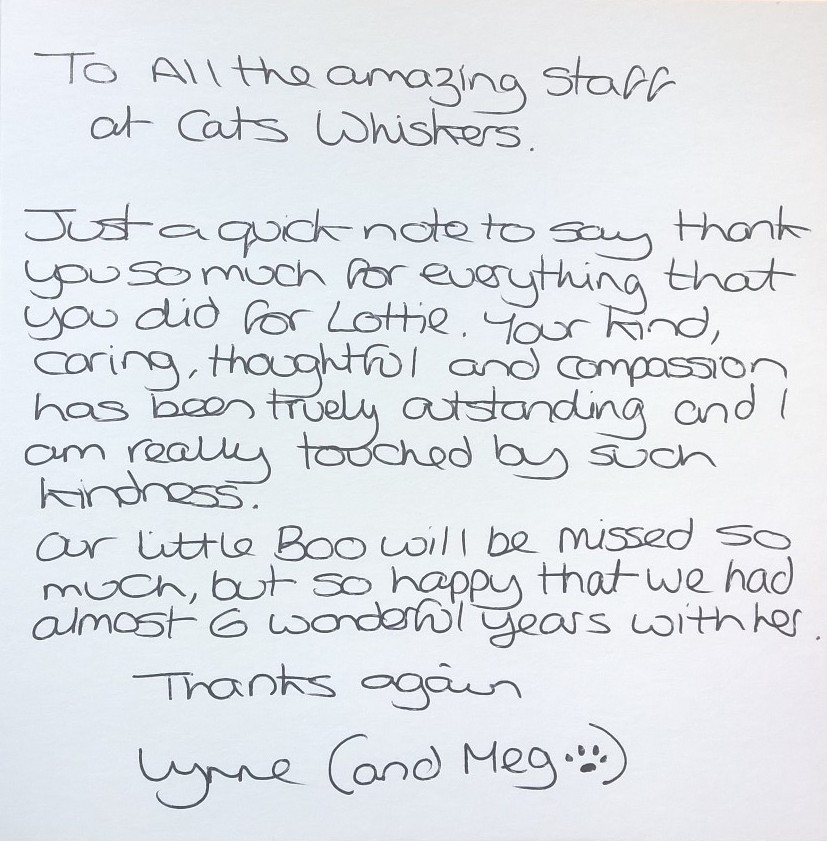 To All the amazing Staff
at Cats Whiskers.
Just a quick note to say thank
you so much for everything that
you did for Lottie. Your kind,
caring, thoughtful and compassion
has been truely outstanding and I
am really touched by such
kindness.
Our little Boo will be missed so
much, but so happy that we had
almost 6 wonderful years with her.
Thanks again
Lynne (and Meg 🐾)